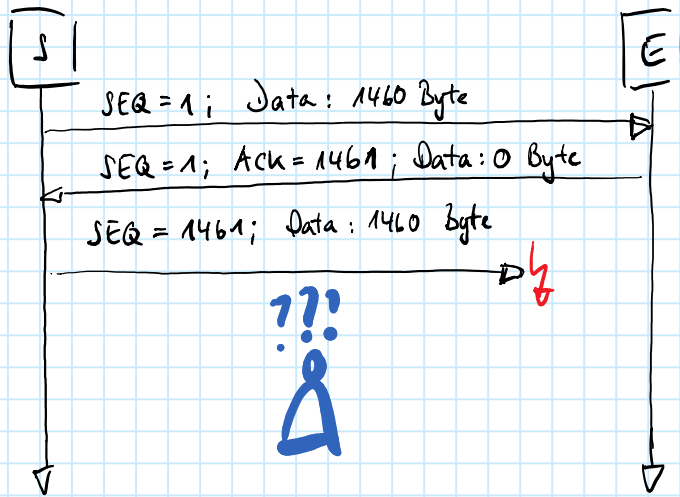 S E
SEQ = 1; Data: 1460 Byte
SEQ = 1; Ack = 1461; Data: 0 Byte
SEQ = 1461; Data: 1460 Byte
???